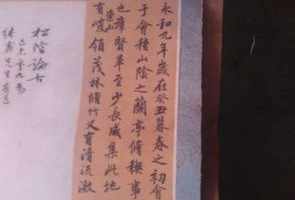 永和九年歲在癸丑暮春之初會
于會稽山陰之蘭亭脩禊事
也羣賢畢至少長咸集此地
有崇山峻領茂林脩竹又有清流激
松陰論古
先生